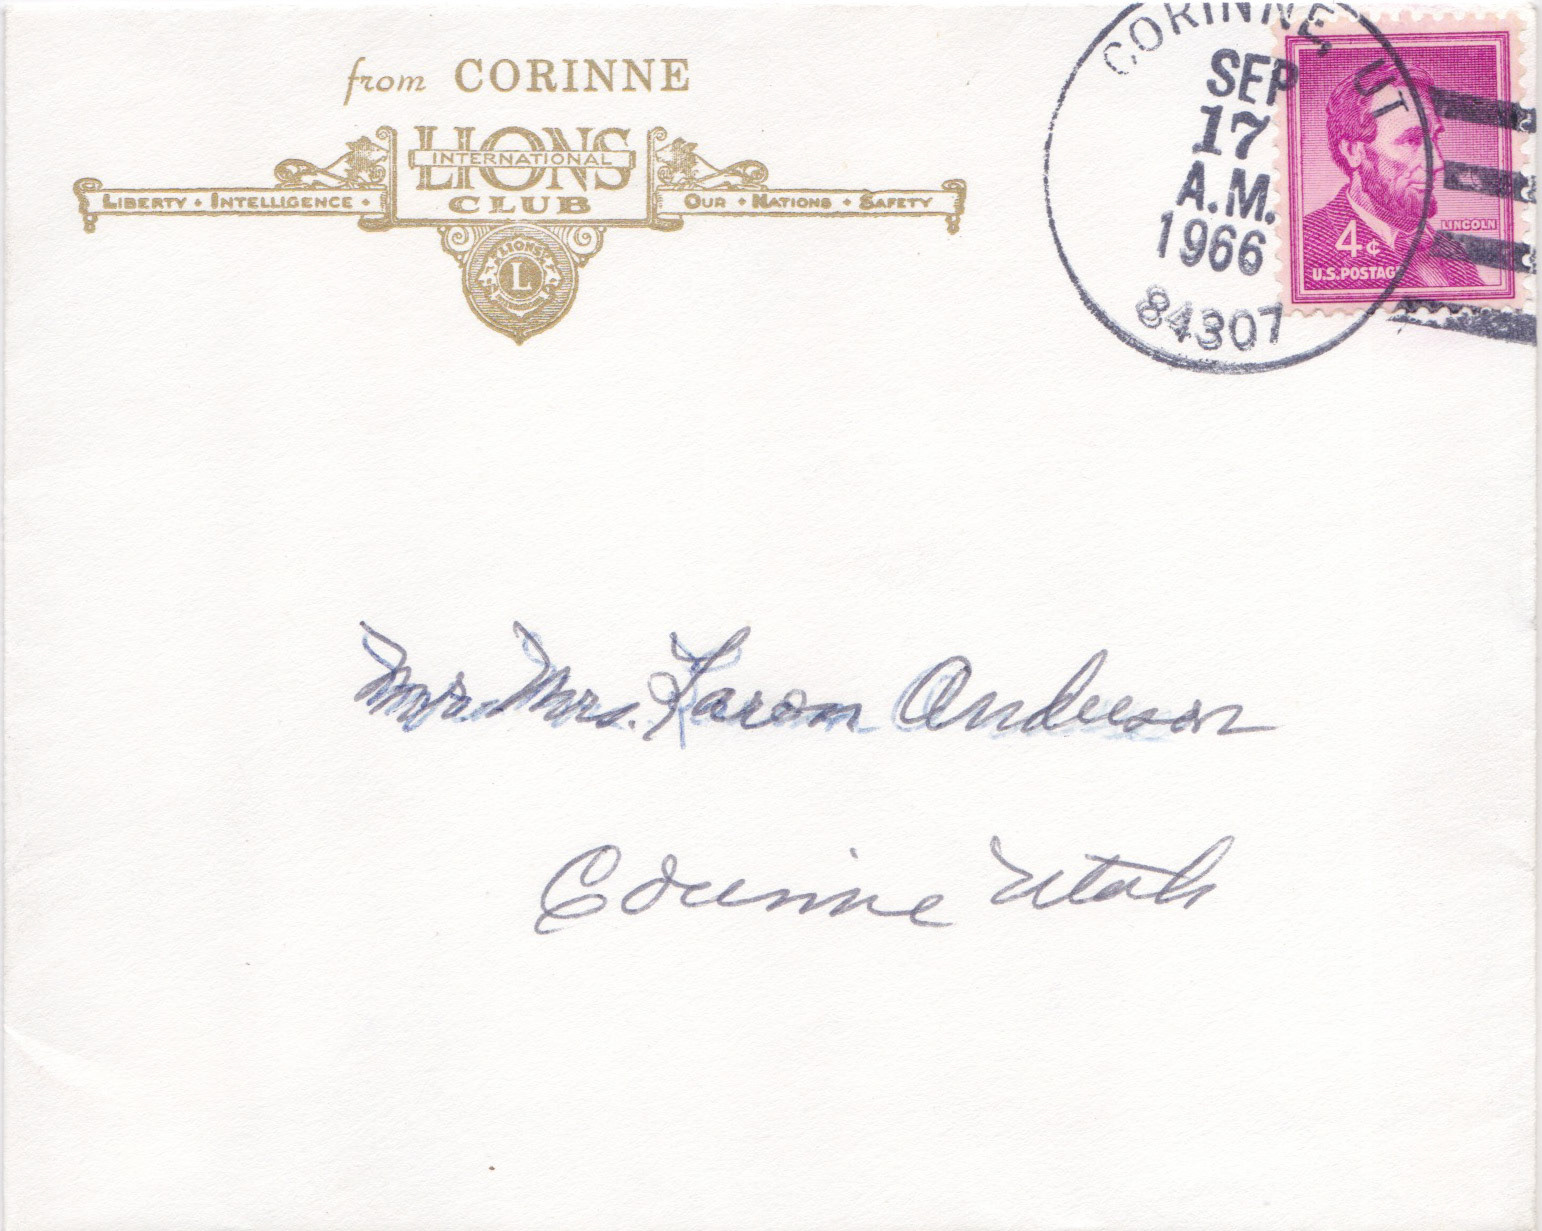 from CORINNE
LIONS
INTERNATIONAL
CLUB
LIBERTY • INTELLIGENCE •
OUR • NATIONS • SAFETY
LIONS
L
CORINNE UT
SEP
17
A.M.
1966
84307
LINCOLN
4¢
U.S. POSTAGE
Mr. Mrs. Karom Anderson
Corinne Utah